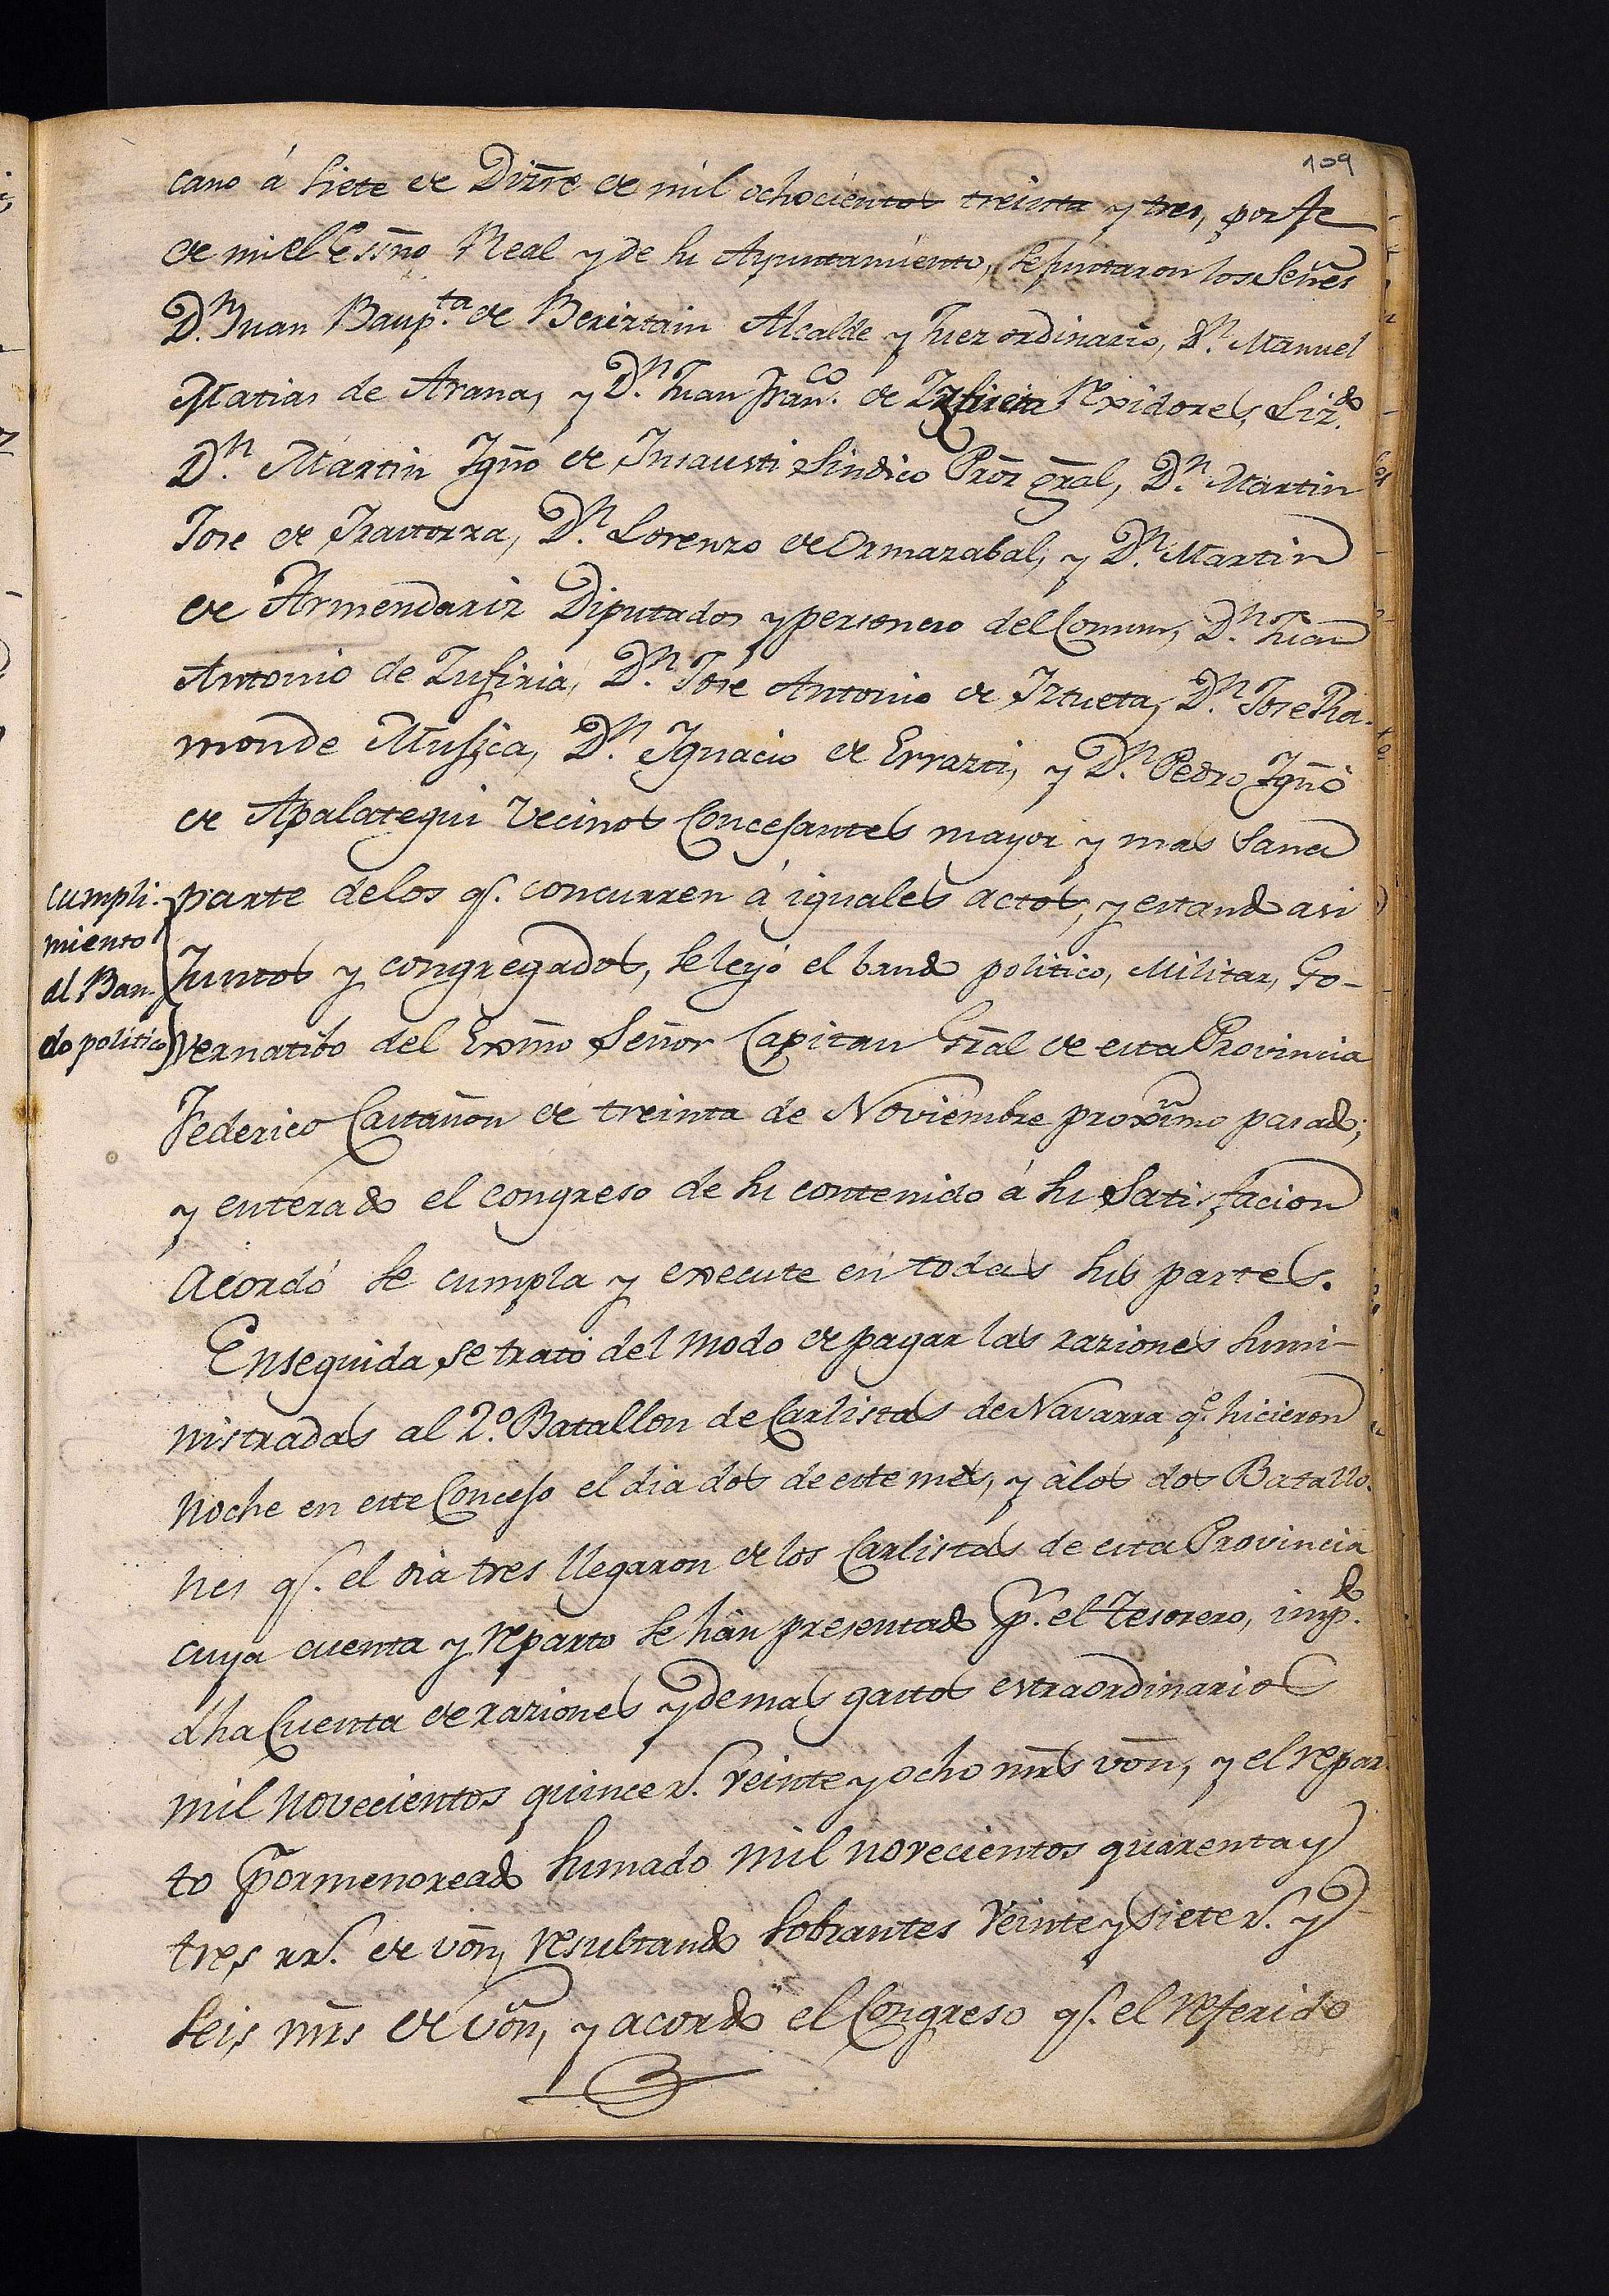 109
cano á siete de Dizre de mil ochocientos treinta y tres, por fe
de mi el Essno Real y de su Ayuntamiento, se juntaron los Señres
Dn. Juan Baupta. de Beriztain Alcalde y Juez ordinario, Dn. Manuel
Matias de Arana, y Dn. Juan Franco. de Rexidores, Lizdo.
Dn. Martin Igño de Insausti Sindico Pror gral, Dn. Martin
Jose de Iraitorza, Dn. Lorenzo de Ormazabal, y Dn. Martin
de Armendariz Diputados y personero del Comun, Dn. Juan
Antonio de Zufiria, Dn. Jose Antonio de Iztueta, Dn. Jose Ra-
mon de Musica, Dn. Ignacio de Errazti, y Dn. Pedro Igñó
de Apalategui Vecinos Concejantes mayor y mas sana
parte de los q. concurren á iguales actos, y estando asi
Juntos y congregados, se leyó el bando politico, Militar, Go-
vernatibo del Exmo Señor Capitan Gral de esta Provincia
Federico Castañon de treinta de Noviembre proximo pasado;
y enterado el congreso de su contenido á su Satisfacion
acordó se cumpla y execute en todas sus partes.
cumpli-
miento
al Ban-
do politico
Enseguida se trató del modo de pagar las raziones sumi-
nistradas al 2.º Batallon de Carlistas de Navarra qe. hicieron
noche en este Concejo el dia dos de este mes, y á los dos Batallo-
nes q. el dia tres llegaron de los Carlistas de esta Provincia
cuya cuenta y reparto se hán presentado p. el Tesorero, impdo.
dha Cuenta de raziones y demas gastos extraordinarios
mil novecientos quince r. veinte y ocho mrs von, y el repar-
to pormenoreado sumado mil novecientos quarenta y
tres rr. de von, resultando sobrantes Veinte y siete r. y
seis mrs de von, y acordó el Congreso q. el referido